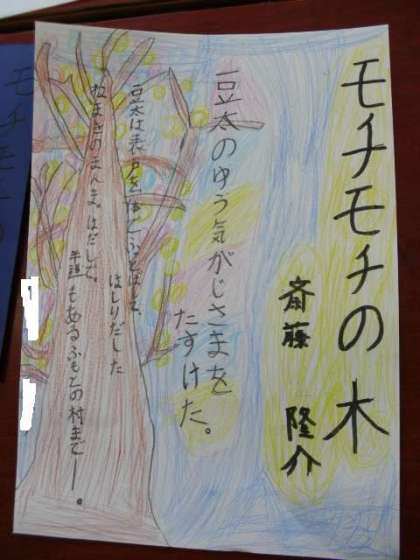 モチモチの木
斎藤 隆介
豆太のゆう気がじさまを
たすけた。
豆太は表戸を体でふっとばして、
はしりだした
ねまきのまんま。はだしで。
半道もあるふもとの村まで―。
モチモ